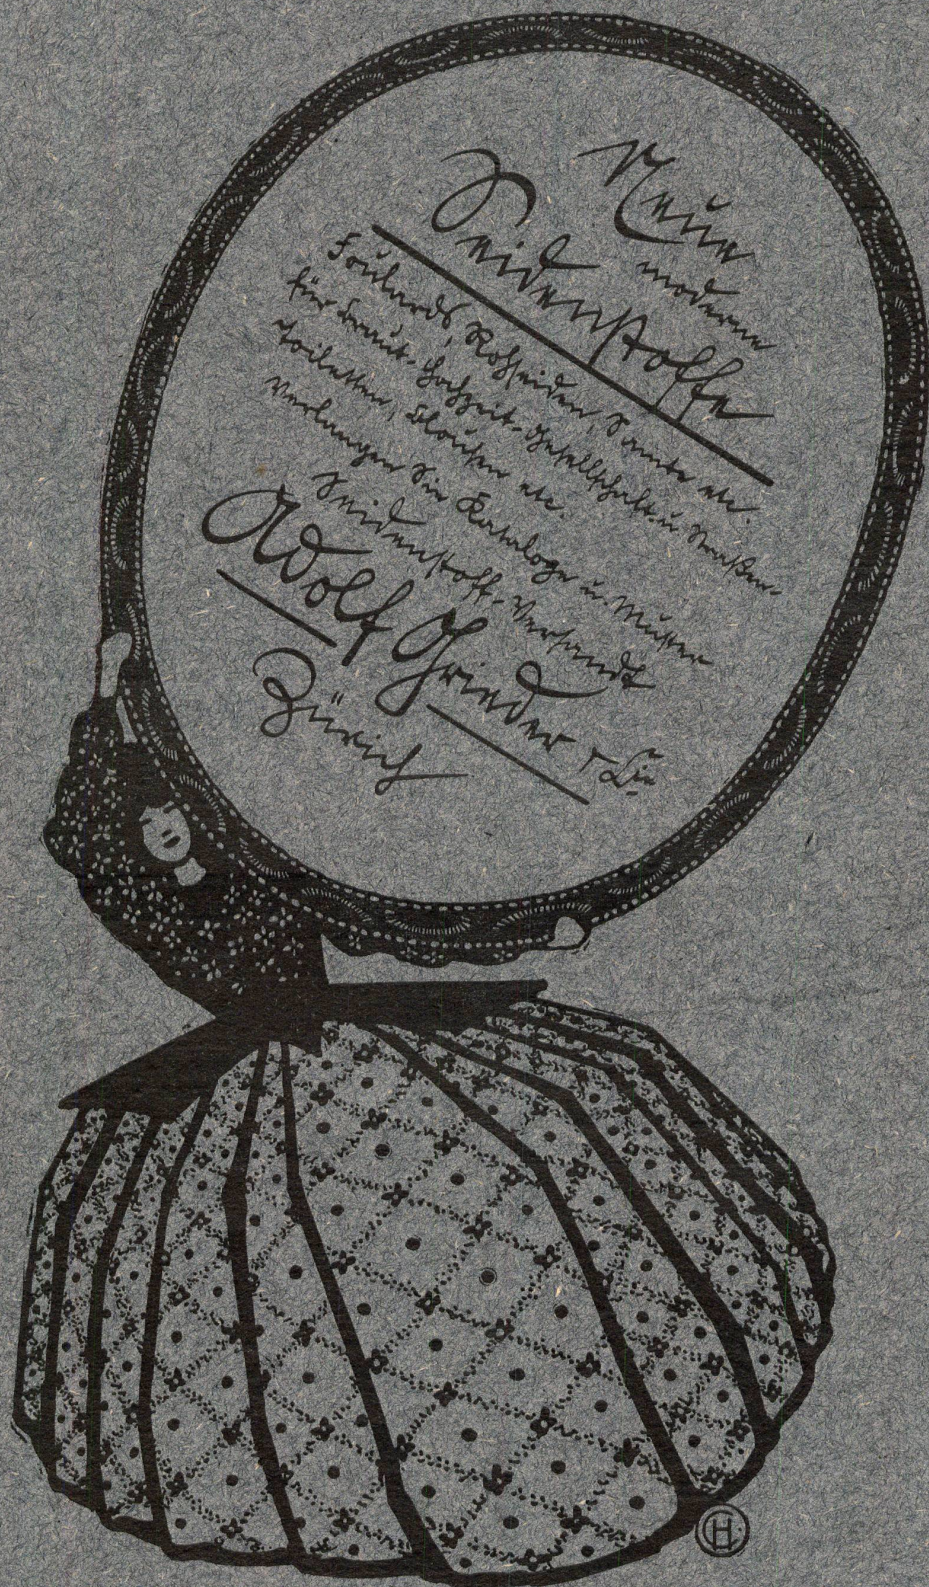 Neue
moderne
Seidenstoffe
Foulards, Rohseiden, Samte etc.
für Braut-, Hochzeit-, Gesellschaft- u. Straßen-
toiletten, Blousen etc.
Verlangen Sie Kataloge u. Muster
Seidenstoff-Versandt
Adolf Grieder & Cie
Zürich
H